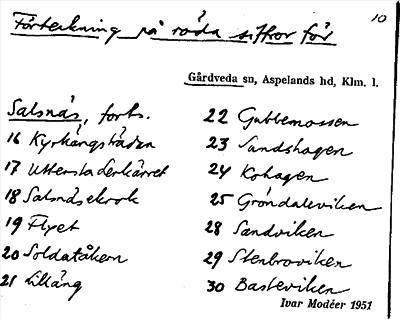 10
Förteckning på röda siffror för
Gårdveda sn, Aspelands hd, Klm. l.
Salsnäs, forts.
16 Kyrkängstäden
17 Uttersladerkärret
18 Salsnäsekrok
19 Flyet
20 Soldatåkern
21 Lilläng
22 Gubbemossen
23 Sandshagen
24 Kohagen
25 Gröndaleviken
28 Sandviken
29 Stenbroviken
30 Basteviken
Ivar Modéer 1951